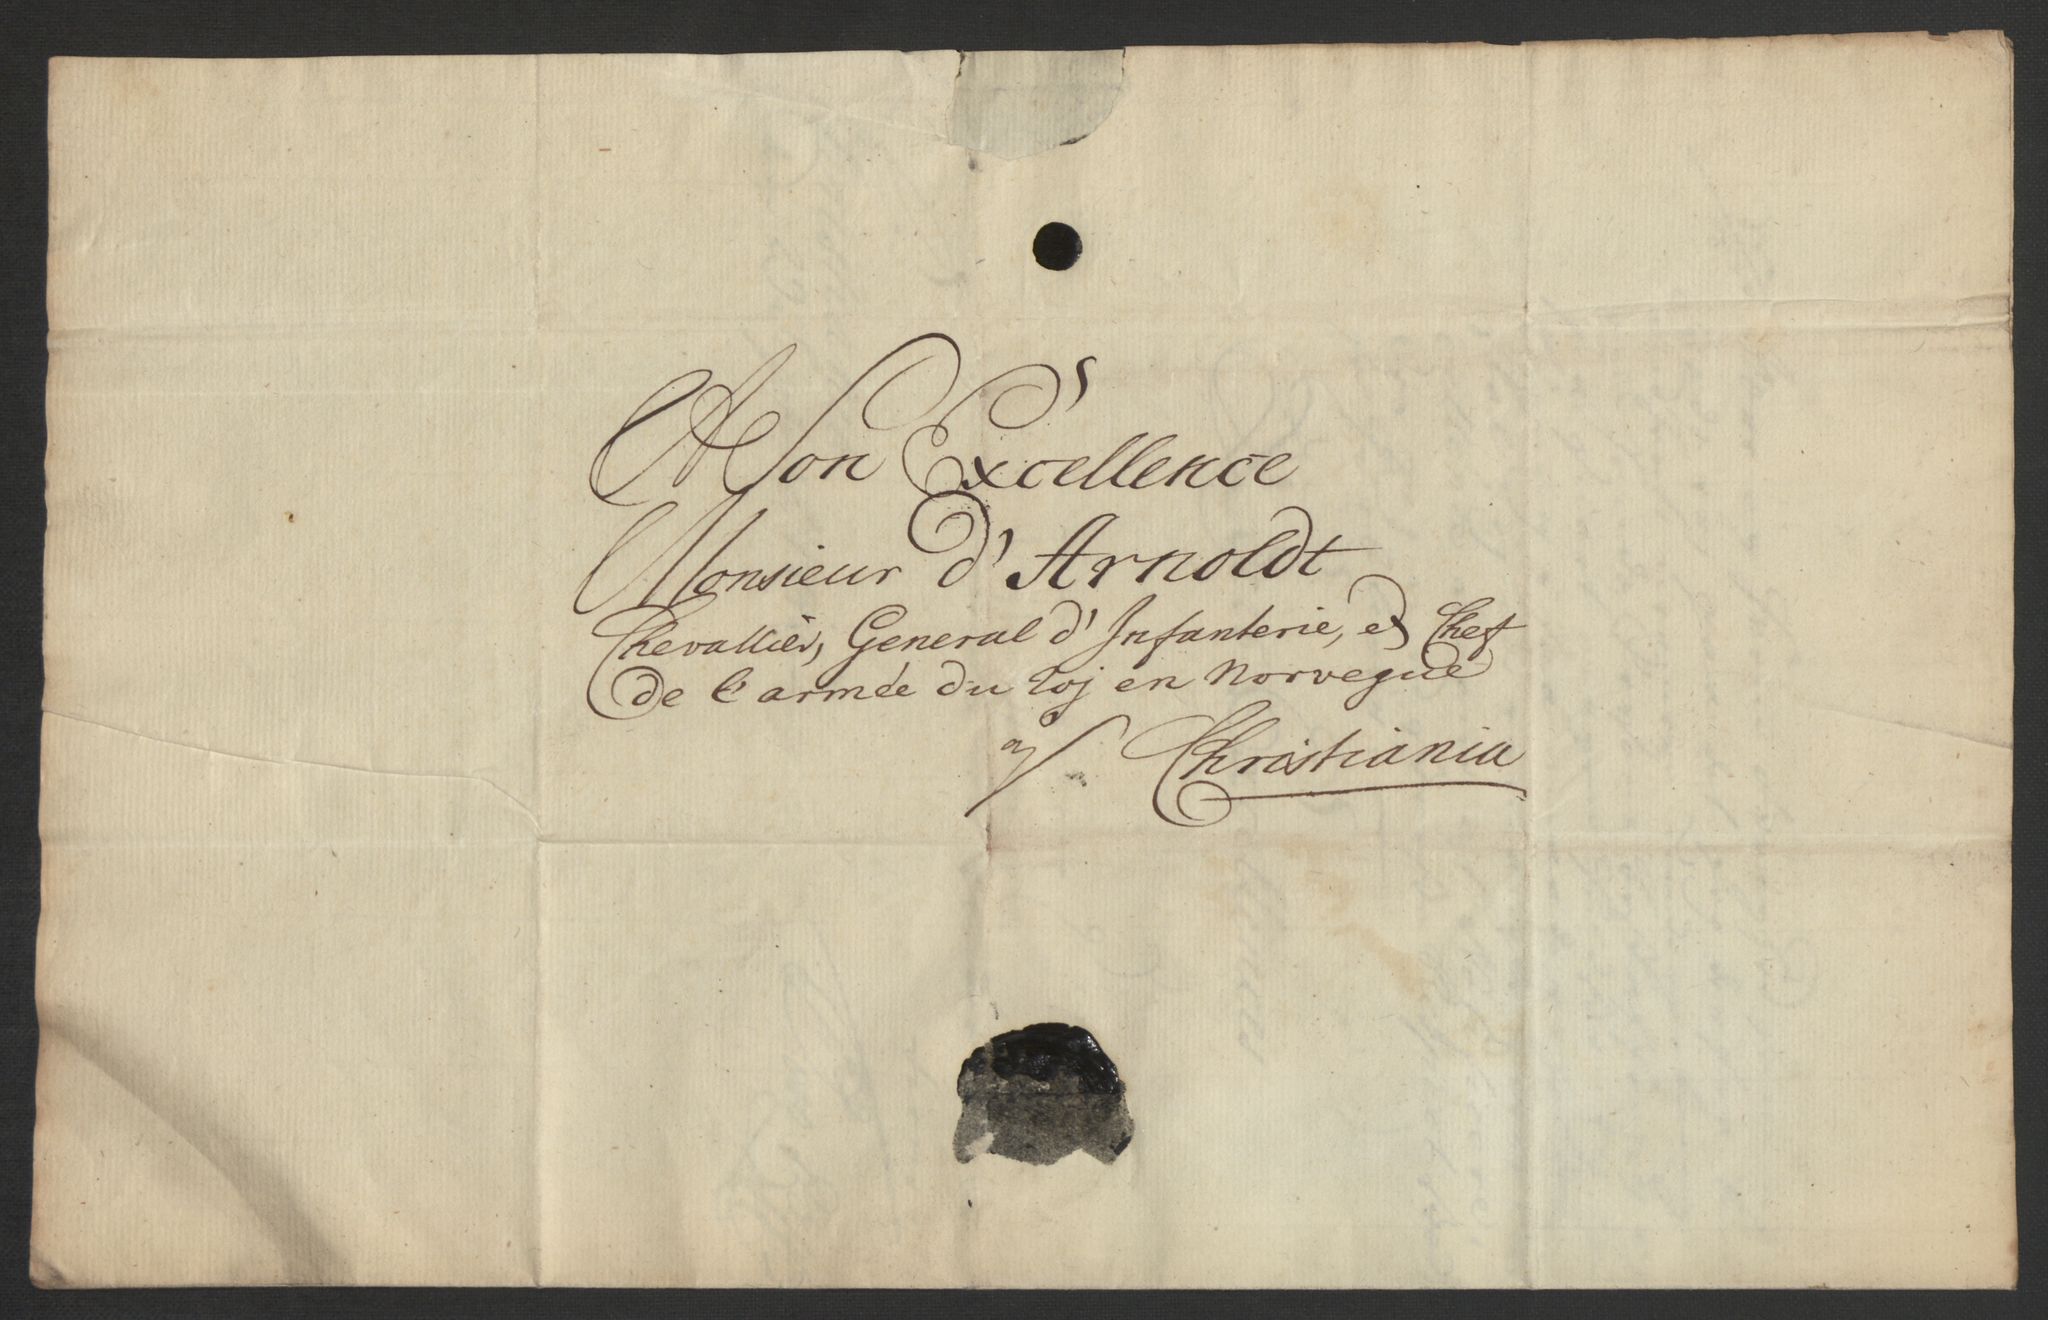 Mon Excellence
Monsieur d' Arnoldt
Chevallier, General d' Infanterie, et Chef
de l' armée du roj en Norvegue
a/ Christiania